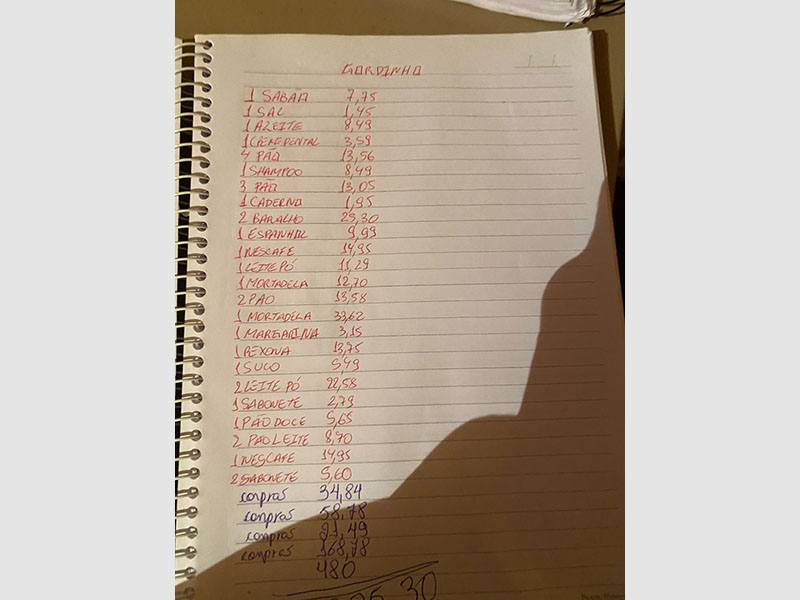 GORDINHO
1 SABÃO 7,75
1 SAL 1,45
1 AZEITE 8,49
1 CREME DENTAL 3,59
4 PÃO 13,56
1 SHAMPOO 8,49
3 PÃO 13,05
1 CADERNO 1,95
2 BARALHO 25,30
1 ESPANHOL 9,99
1 NESCAFE 14,95
1 LEITE PÓ 11,29
1 MORTADELA 12,70
2 PÃO 13,58
1 MORTADELA 33,62
1 MARGARINA 3,15
1 REXONA 13,75
1 SUCO 5,49
2 LEITE PÓ 22,58
1 SABONETE 2,79
1 PÃO DOCE 5,65
2 PÃO LEITE 8,70
1 NESCAFE 14,95
2 SABONETE 5,60
compras 34,84
compras 58,78
compras 21,49
compras 168,78
480